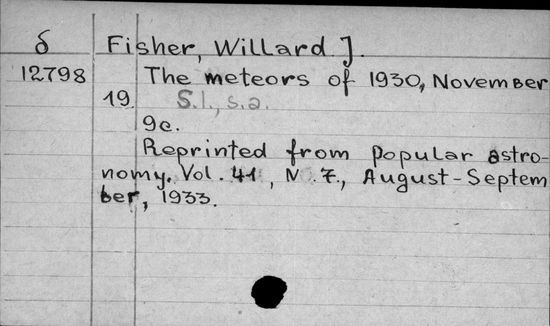 δ Fisher, Willard J.
12798 The meteors of 1930, November
19 S.l., s.a.
9c.
Reprinted from popular astro-
nomy. Vol. 41, N. 7., August-Septem
ber, 1933.